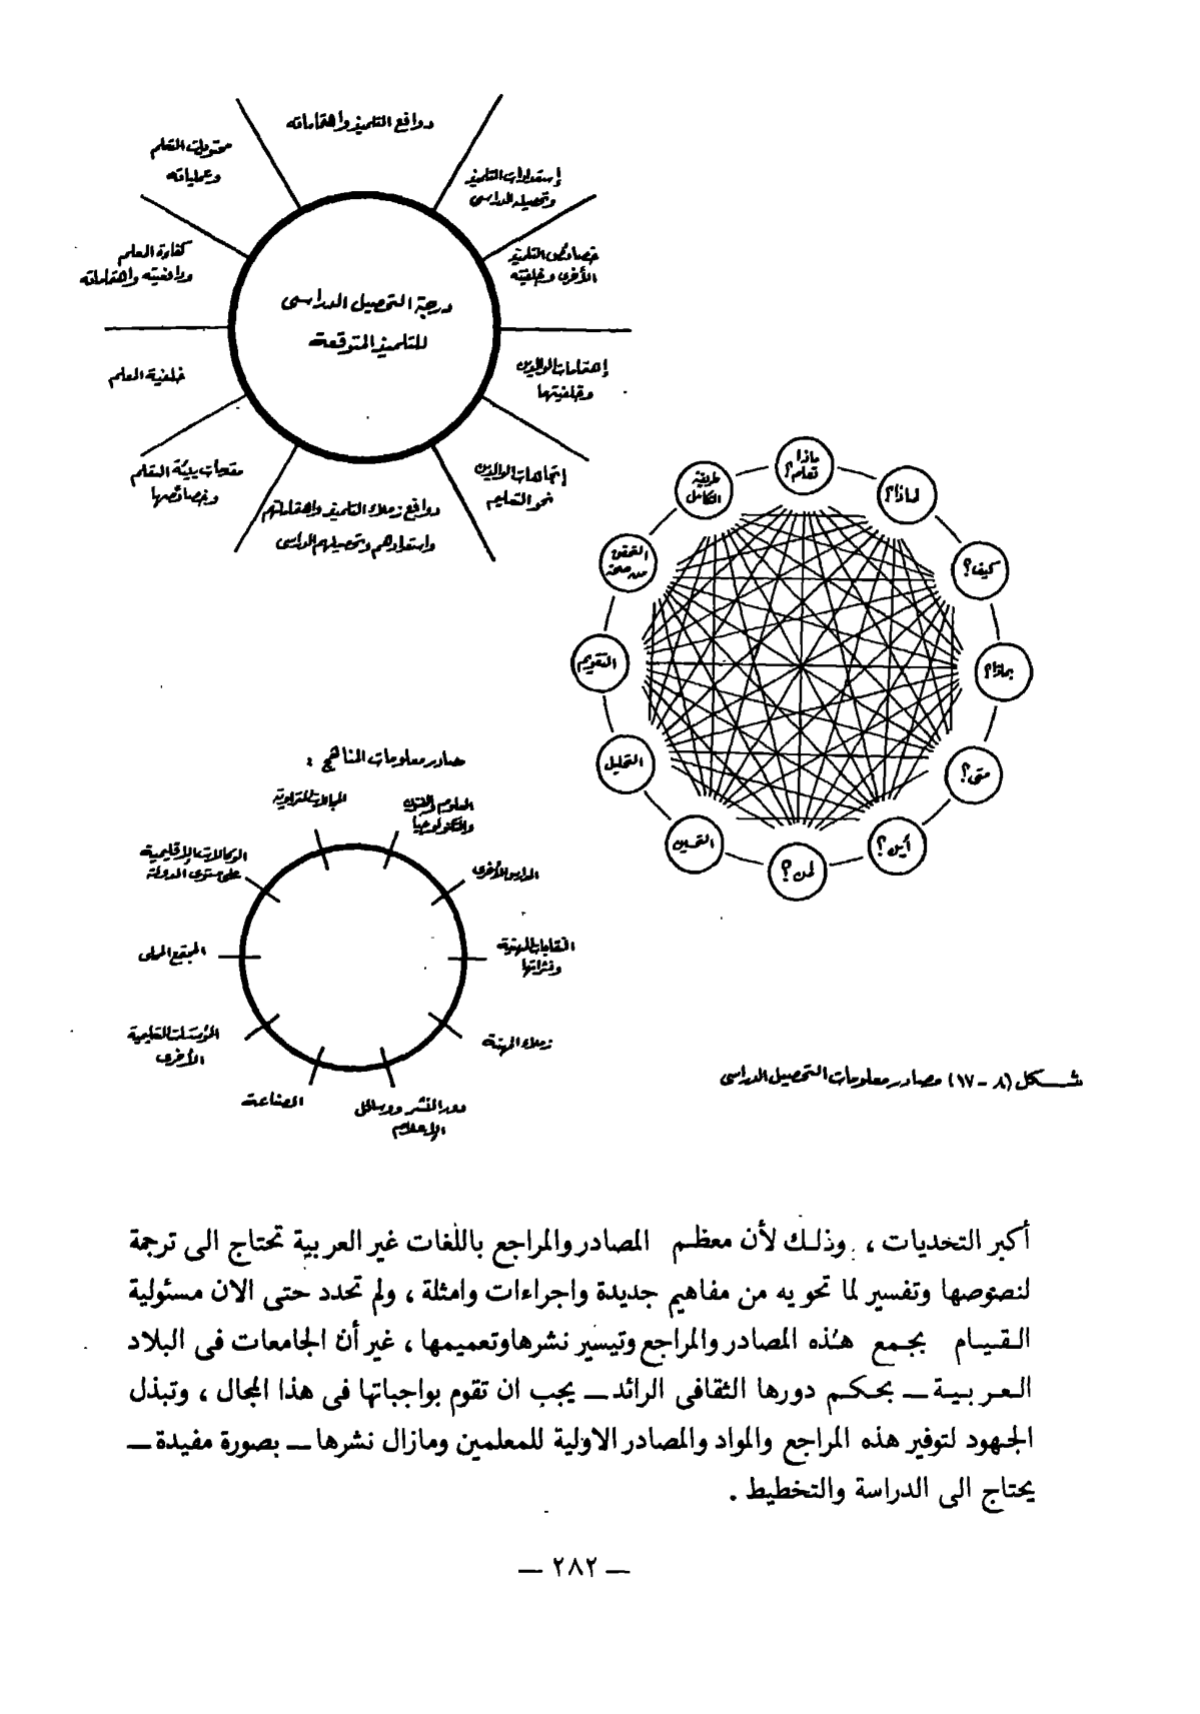 دوافع التلميذ وأهتماماته
إستعدادات التلميذ
وتحصيله الدراسى
خصائص التلميذ
الأخرى وخلفيته
إهتمامات الوالدين
وخلفيتها
إتجاهات الوالدين
نحو التعليم
دوافع زملاء التلميذ واهتماماتهم
واستعدادهم وتحصيلهم الدراسى
خلفية المعلم
كفاءة المعلم
ودافعيته واهتماماته
محتويات التعلم
وعملياته
درجة التحصيل الدراسى
للتلميذ المتوقعة
ماذا
تعلم؟
لماذا؟
كيف؟
بماذا؟
متى؟
أين؟
لمن؟
التحسين
التحليل
التقويم
التحقق
من صحة
طريقة
التكامل
مصادر معلومات المناهج :
العلوم والفنون
والتكنولوجيا
المدارس الأخرى
النقابات المهنية
ونشراتها
زملاء المهنة
دور النشر ووسائل
الإعلام
الصناعة
المؤسسات التعليمية
الأخرى
المجتمع المحلى
الوكالات الإقليمية
على مستوى الدولة
المجالات التربوية
شكل (٨ - ١٧) مصادر معلومات التحصيل الدراسى
أكبر التحديات ، وذلك لأن معظم المصادر والمراجع باللغات غير العربية تحتاج الى ترجمة
لنصوصها وتفسير لما تحويه من مفاهيم جديدة واجراءات وامثلة ، ولم تحدد حتى الان مسئولية
القيام بجمع هذه المصادر والمراجع وتيسير نشرها وتعميمها ، غير أن الجامعات فى البلاد
العربية ــ بحكم دورها الثقافى الرائد ــ يجب ان تقوم بواجباتها فى هذا المجال ، وتبذل
الجهود لتوفير هذه المراجع والمواد والمصادر الاولية للمعلمين ومازال نشرها ــ بصورة مفيدة ــ
يحتاج الى الدراسة والتخطيط .
— ٢٨٢ —